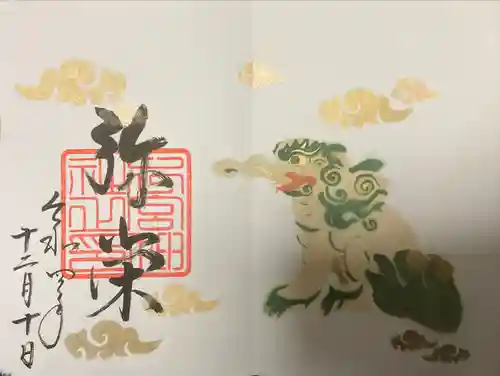 弥栄
令和四年
十二月十日